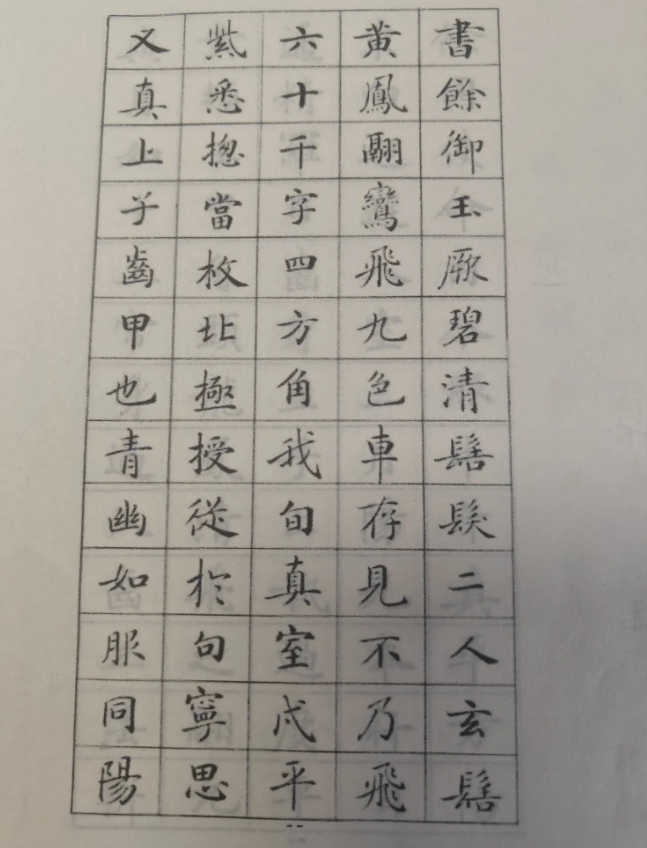 書餘御王厥碧清髻髮二人玄髻
黃鳳翮鸞飛九色車存見不乃飛
六十千字四方角我旬真室戍平
紫悉揔當枚北極授從於句寧思
又真上子齒甲也青幽如服同陽